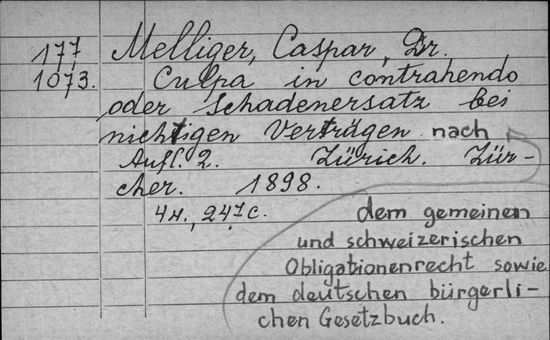 177, Melliger, Caspar, Dr.
1073. Culpa in contrahendo
oder Schadenersatz bei
nichtigen Verträgen nach
Aufl. 2. Zürich. Zür-
cher. 1898.
4H., 247c.
dem gemeinen
und schweizerischen
Obligationenrecht sowie
dem deutschen bürgerli-
chen Gesetzbuch.